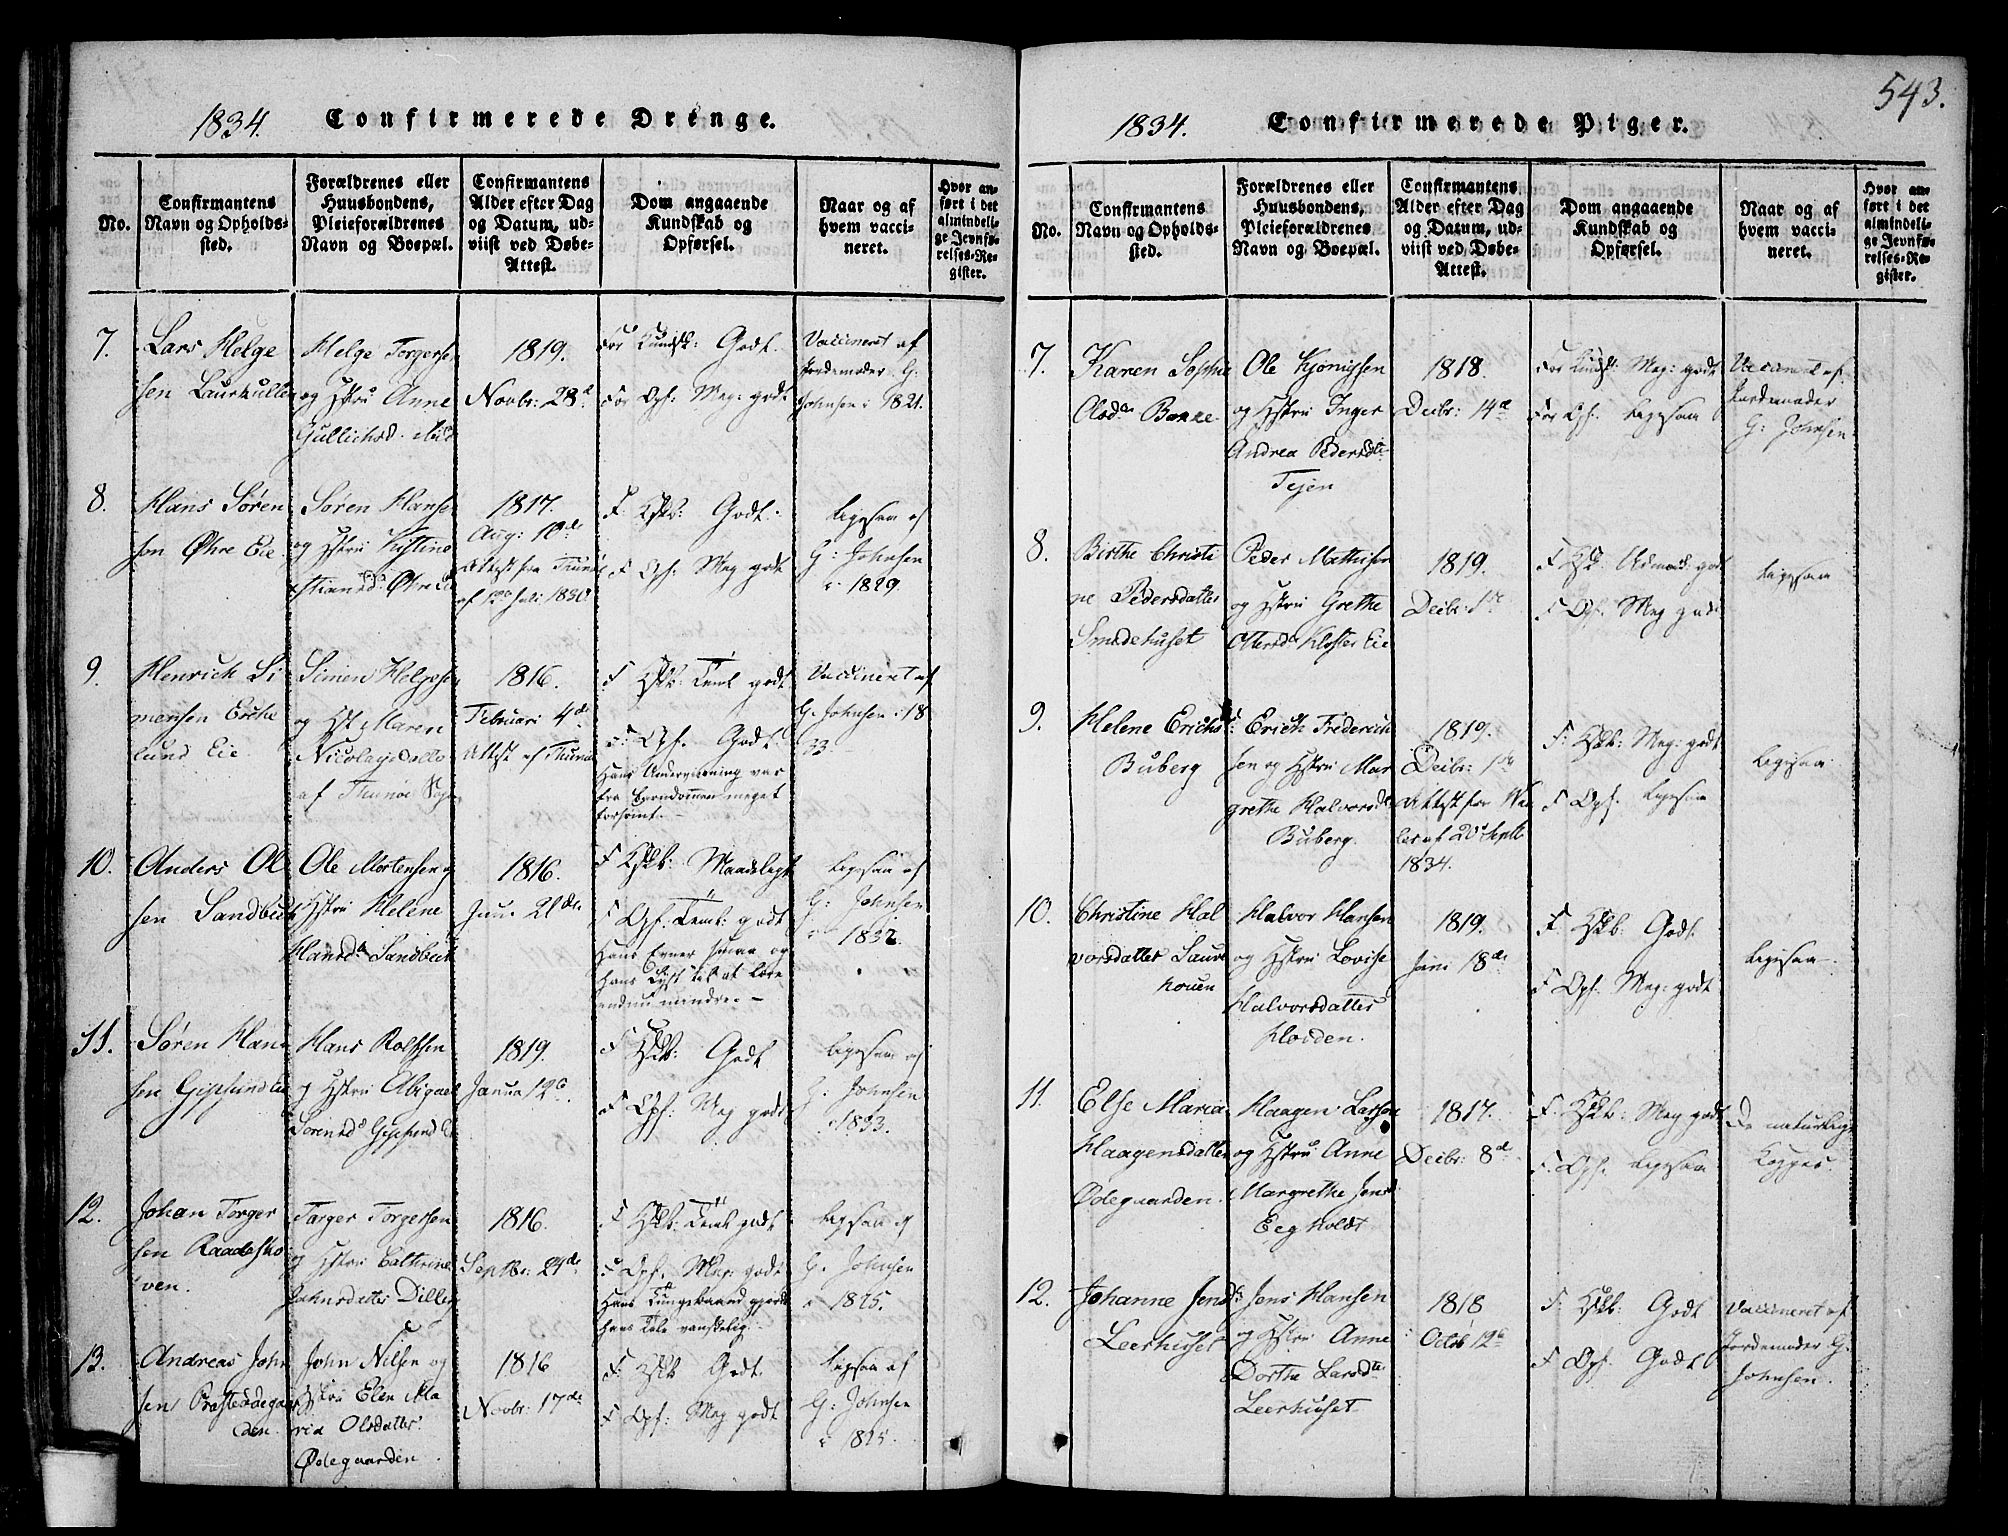 543.
1834. Confirmerede Drenge.
No.
Confirmantens Navn og Opholdssted.
Forældrenes eller Huusbondens, Pleieforældrenes Navn og Boepæl.
Confirmantens Alder efter Dag og Datum, udviist ved Døbe-Attest.
Dom angaaende Kundskab og Opførsel.
Naar og af hvem vaccineret.
Hvor anført i det almindelige Jevnførelses-Register.
7.
Lars Helge
sen
Helge Torgersen
og Hstru Anne
1819.
Novbr: 28d
For Kundsk: Godt.
For Opf: Meg: godt
Vaccineret af
Jordemoder G:
Johnsen i 1821.
8.
Hans Søren
sen Øhre Eie
Søren Hansen
og Hstru
1817.
Aug: 10de
Attest fra
af 12te Juli 1830
F. Kskb: Godt.
F Opf: Meg godt
Ligesaa af
G: Johnsen
i 1829.
9.
Henrich Si
mensen
lund Eie
Simen Helgesen
og Hst Maren
Nicolaysdatter
af
1816.
Februari 4de
Attest af
F Kskb: Teml godt
F: Opf. Godt.
Hans Underviisning var
fra Barndommen meget
forsømt.
Vaccineret af
G. Johnsen i 18
33
10.
Anders Ol
sen Sandbek
Ole Mortensen og
Hstru Helene
Hansd. Sandbek
1816.
Juni 21de
F Kskb: Maadeligt
F Opf. Teml: godt
Hans Evner smaa og
hans Lyst til at lære
endnu mindre.
Ligesaa af
G: Johnsen
i 1832.
11.
Søren Han
sen
Hans Rolfsen
og Hstru Abigael
Sørensd
1819.
Janua 12te
F Kskb: Godt
F Opf: Meg godt
Ligesaa af
G. Johnsen
i 1833.
12.
Johan Torger
sen Raadesko
ven.
Torger Torgersen
og Hstru Cathrine
Johnsdatter
1816.
Septbr: 24de
F Kskb: Teml godt
F Opf. Meg: godt
Hans Tungebaand gjorde
hans Tale vanskelig.
Ligesaa af
G. Johnsen
i 1825.
13.
Andreas John
sen Præsteødegaar
den.
John Nilsen og
Hstru Elen Ma
ria Olsdatter
Ødegaarden.
1816
Novbr: 17de
F: Kskb Godt.
F Opf: Meg godt
Ligesaa af
G: Johnsen
i 1825.
1834. Confirmerede Piger.
No.
Confirmantens Navn og Opholdssted.
Forældrenes eller Huusbondens, Pleieforældrenes Navn og Boepæl.
Confirmantens Alder efter Dag og Datum, udviist ved Døbe-Attest.
Dom angaaende Kundskab og Opførsel.
Naar og af hvem vaccineret.
Hvor anført i det almindelige Jevnførelses-Register.
7.
Karen Sophie
Olsdr Bakke
Ole Kjønigsen
og Hstru Inger
Andrea Pedersdtr
Tejen
1818.
Decbr: 14de
For Kundsk: Meg: godt
For Opf. Ligesaa
Vaccineret af
Jordemoder
G: Johnsen.
8.
Birthe Christi
ne Pedersdatter
Smedehuset
Peder Mathisen
og Hstru Grethe
Olavsdr Kloster Eie
1819.
Decbr: 1te
F Kskb: Udmærk: godt
F Opf. Meg godt
Ligesaa
9.
Helene Erichsdr:
Buberg
Erich Frederich
sen og Hstru Mar
grethe Halvorsdr
Buberg.
1819.
Decbr: 1te
Attest fra
1834.
F: Kskb: Meg: godt
F Opf. Ligesaa
Ligesaa.
10.
Christine Hal
vorsdatter
Halvor Hansen
og Hstru Lovise
Halvorsdatter
1819.
Juni 18de
F Kskb: Godt.
F Opf. Meg: godt
Ligesaa.
11.
Else Maria
Haagensdatter
Ødegaarden.
Haagen Larsen
og Hstru Anne
Margrethe Jensd
Eegholdt
1817.
Decbr: 8de
F: Kskb: Meg godt
F. Opf. Ligesaa
De naturlige
Kopper.
12.
Johanne Jensdr
Leerhuset
Jens Hansen
og Hstru Anne
Dorthe Larsdtr
Leerhuset
1818
Octbr 12te
F: Kskb: Godt
F Opf. Godt
Vaccineret af
Jordemoder G.
Johnsen.